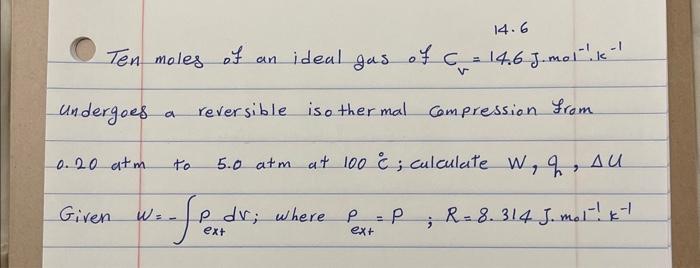 14.6
Ten moles of an ideal gas of Cv = 14.6 J.mol⁻¹.k⁻¹
undergoes a reversible isothermal compression from
0.20 atm to 5.0 atm at 100 °C ; calculate W, q, ΔU
Given W = -∫P_ext dv; where P_ext = P ; R = 8.314 J.mol⁻¹.k⁻¹